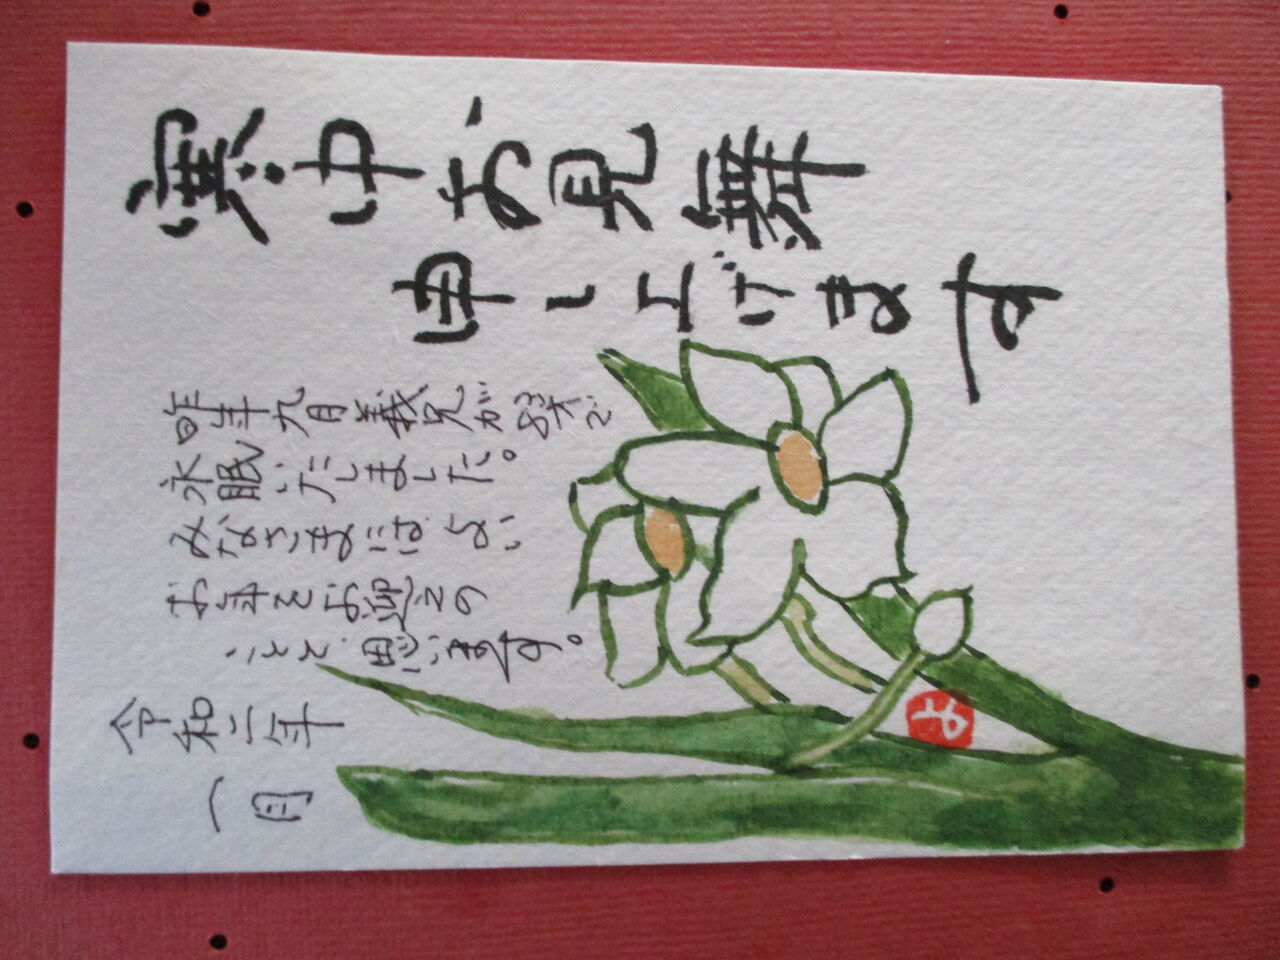 寒中お見舞
申し上げます
昨年九月義兄が93才で
永眠いたしました。
みなさまにはよい
お年をお迎えの
ことと思います。
令和二年
一月